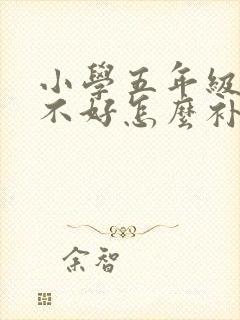 小學五年級
不好怎麼补
余智